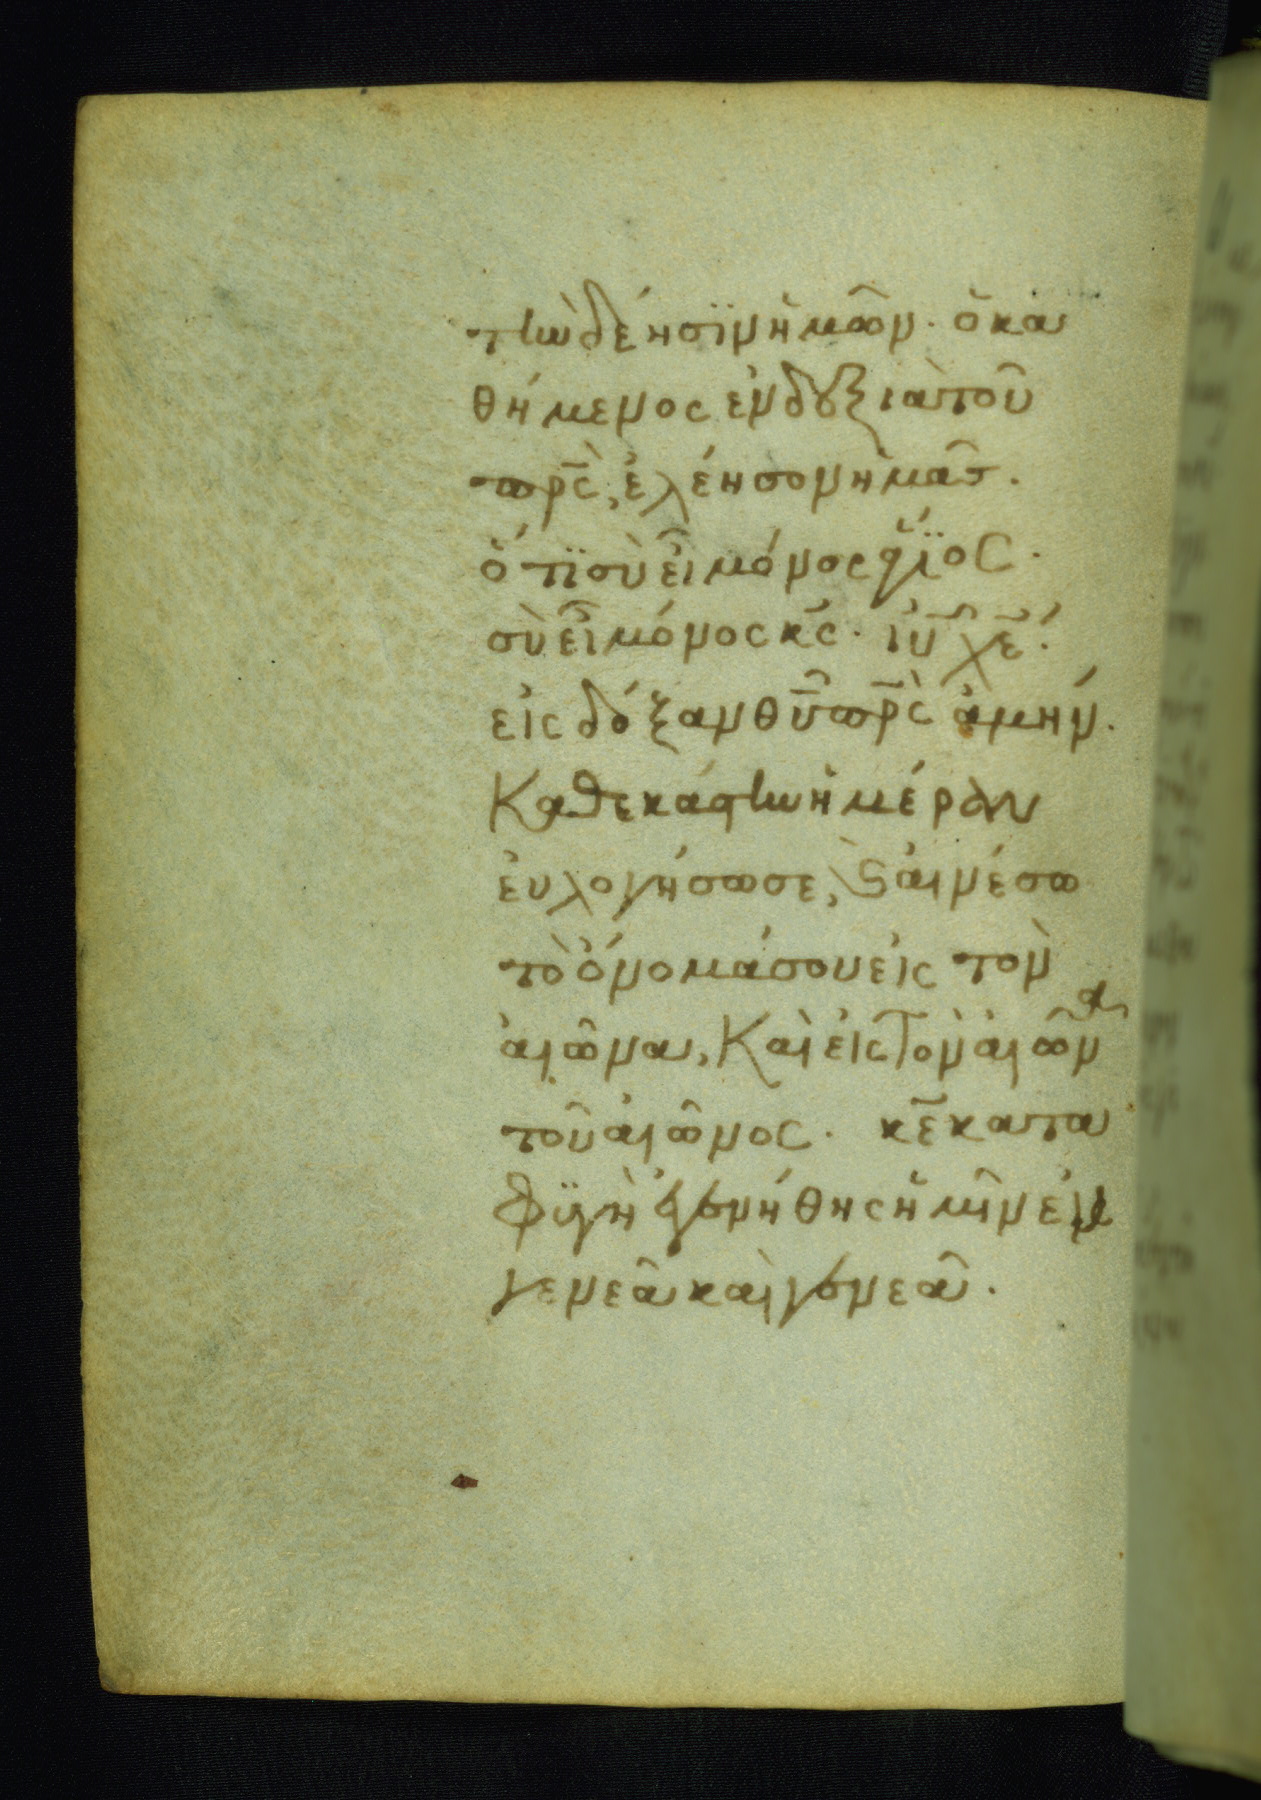 τὴν δέησϊν ἡμῶν· ὁ κα
θήμενος εν δυξια τοῦ
πρ̅ς, ἐλέησον ἡμᾶς.
ὅτϊ σὺ εἶ μόνος ἅγϊος·
σὺ εἶ μόνος κ̅ς· ιῦ χε̅·
εἰς δόξαν θῦ πρ̅ς ἀμήν.
Καθεκάστην ἡμέραν
ἐυλογήσω σε, καὶ αινέσω
τὸ ὄνομά σου εἰς τὸν
ἀιῶνα, Καὶ εἰς τὸν ἀιῶνα
τοῦ ἀιῶνος· κε̅ κατα
φϋγὴ ἐγενήθης ἡμῖν ἐν
γενεᾶ καὶ γενεᾶ·